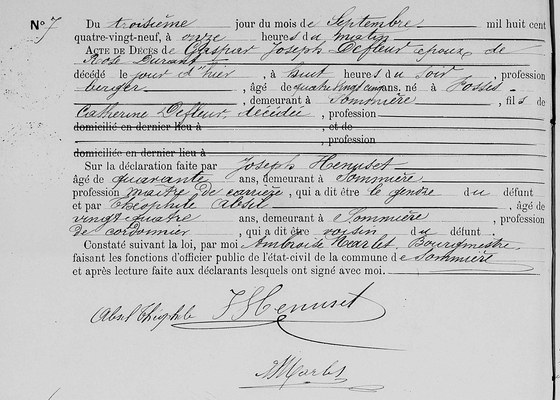 N° 7 Du troisième jour du mois de Septembre mil huit cent
quatre-vingt-neuf, à onze heures du matin
ACTE DE DÉCÈS de Gaspar Joseph Defleur époux de
Rose Durant
décédé le jour d'hier, à huit heures du Soir, profession
berger, âgé de quatre vingt cinq ans, né à Fosses
, demeurant à Sommière, fils de
Catherine Defleur, décédée, profession
domicilié en dernier lieu à et de
, profession
domiciliée en dernier lieu à
Sur la déclaration faite par Joseph Henuset
âgé de quarante ans, demeurant à Sommière
profession Maître de carrière, qui a dit être le gendre du défunt
et par Théophile Absil, âgé de
vingt quatre ans, demeurant à Sommière, profession
de cordonnier, qui a dit être voisin du défunt.
Constaté suivant la loi, par moi Ambroise Marlet Bourgmestre
faisant les fonctions d'officier public de l'état-civil de la commune de Sommière
et après lecture faite aux déclarants lesquels ont signé avec moi.
Absil Théophile J Henuset